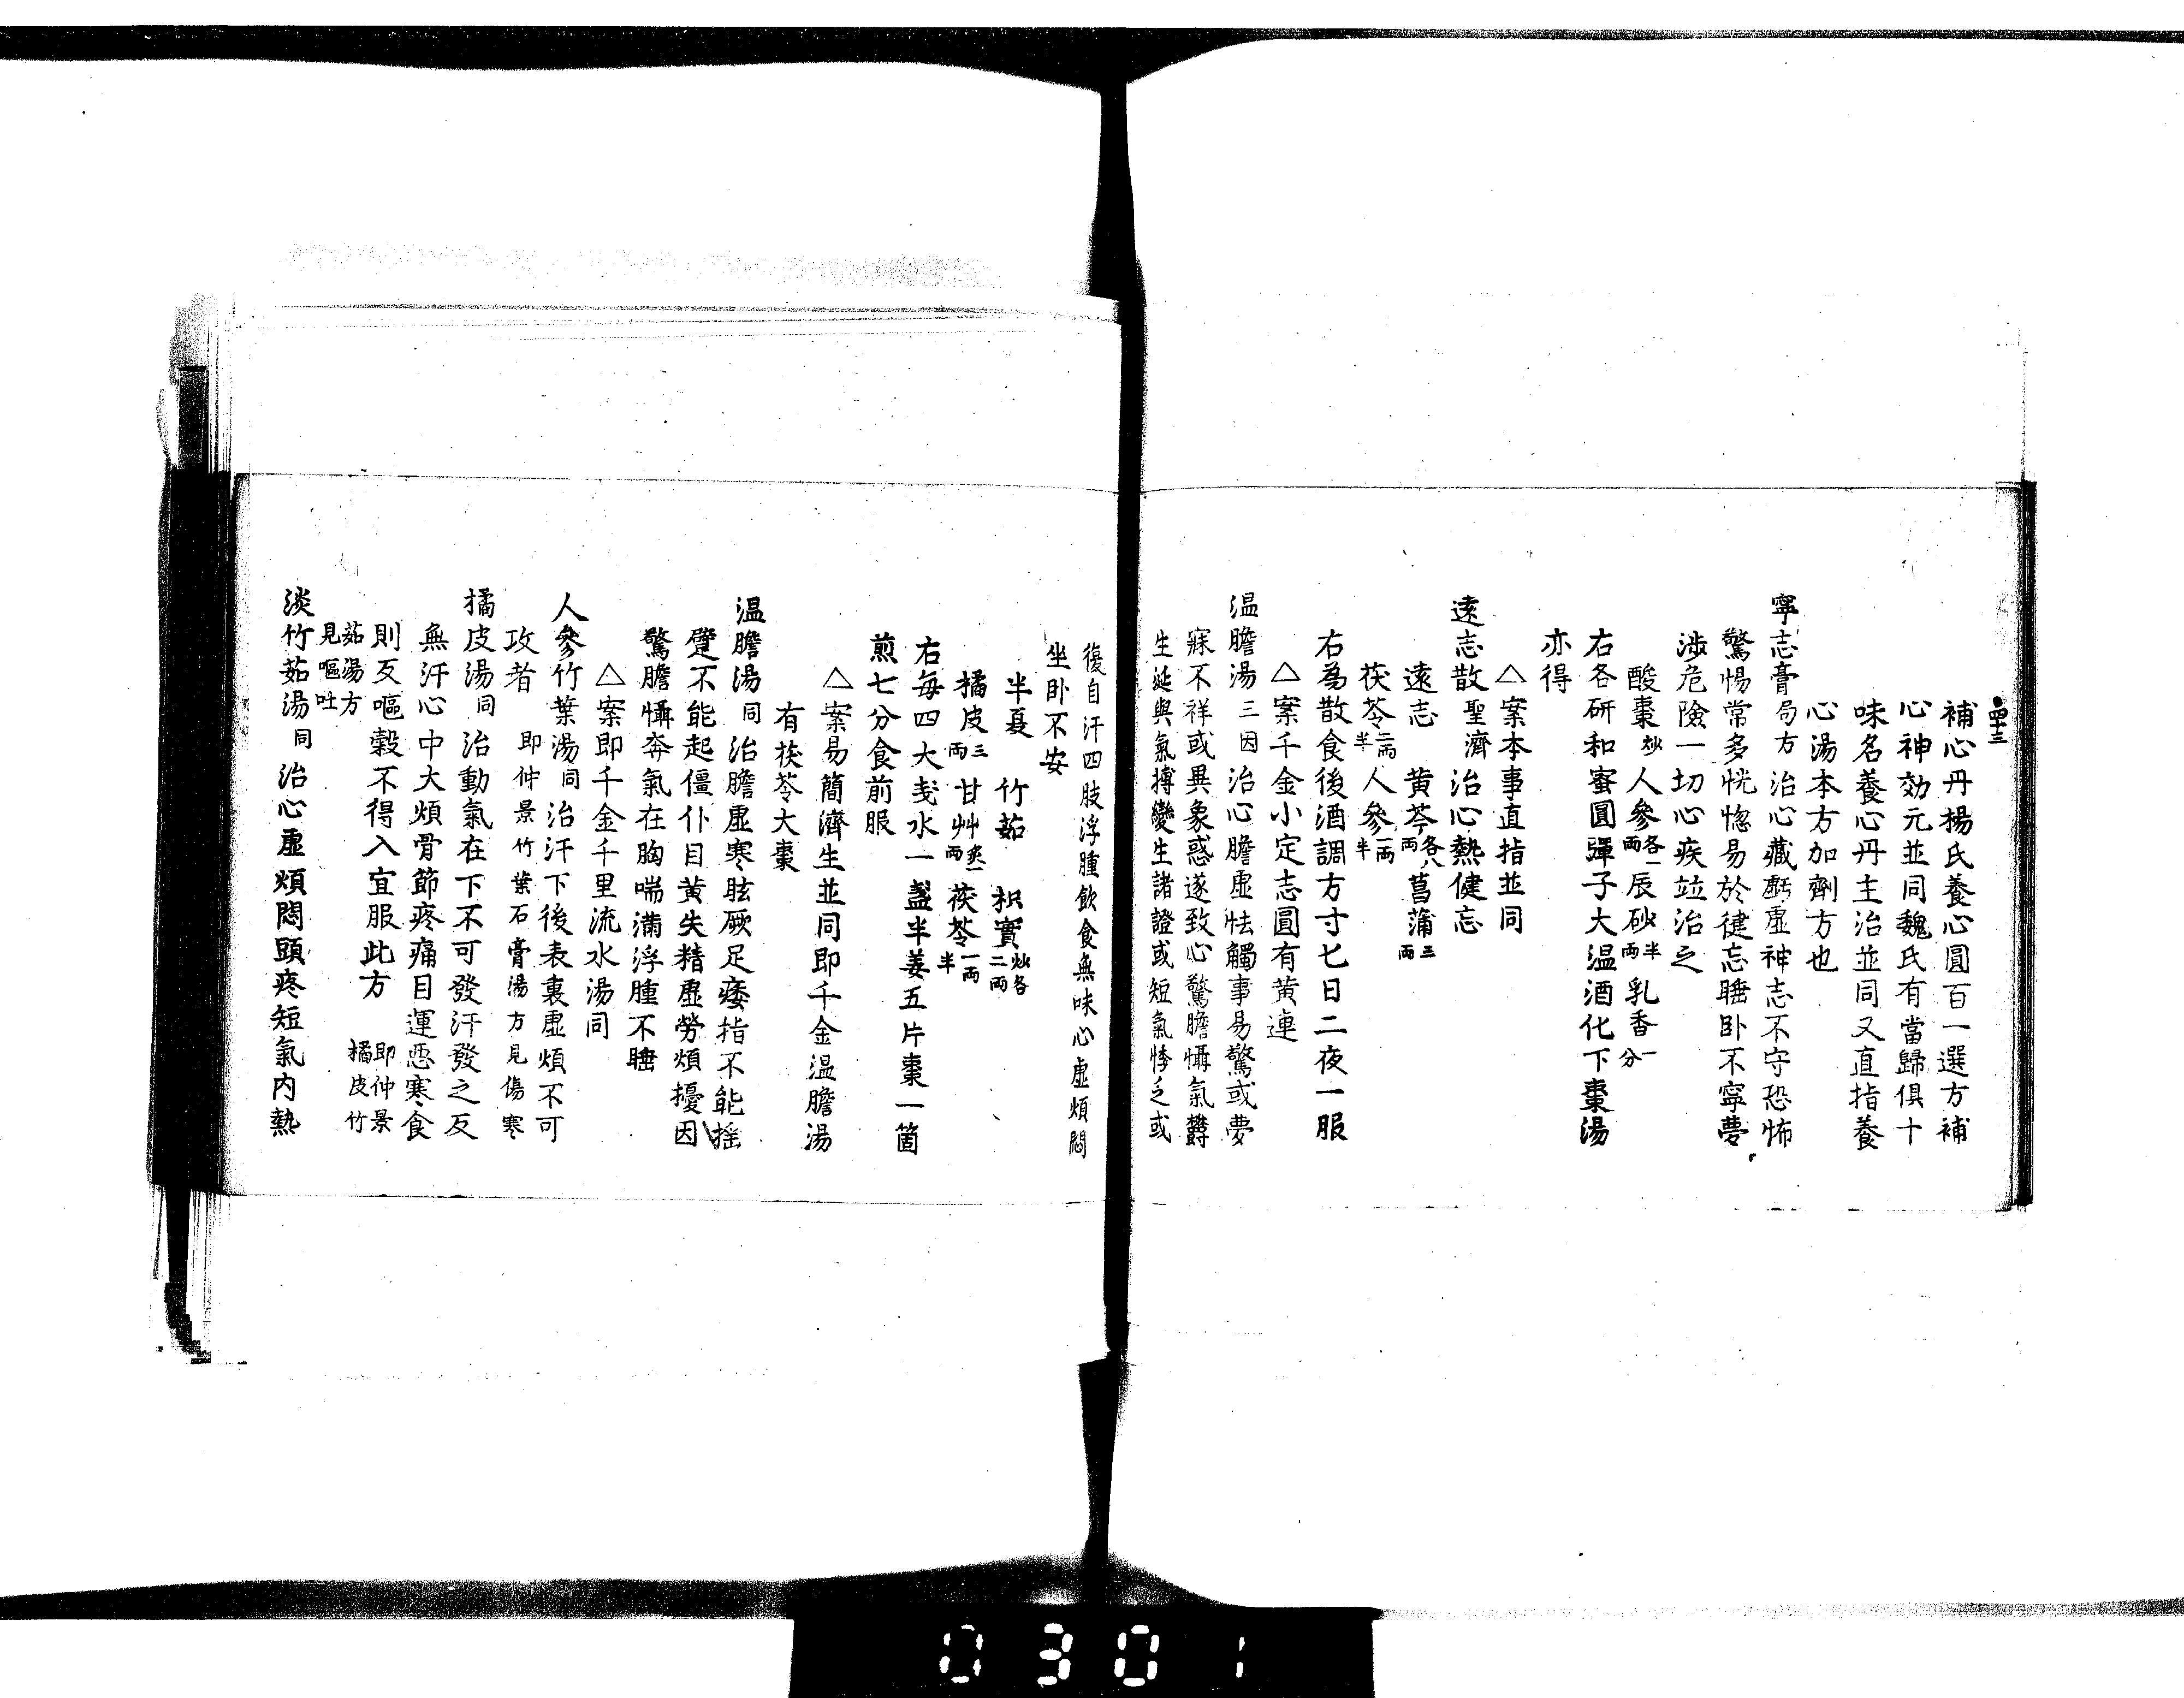 四十三
補心丹楊氏養心圓百一選方補
心神効元並同魏氏有當歸俱十
味名養心丹主治並同又直指養
心湯本方加劑方也
寧志膏局方治心藏虧虛神志不守恐怖
驚惕常多恍惚易於健忘睡卧不寧夢
涉危險一切心疾竝治之
酸棗炒人參各一兩辰砂半兩乳香一分
右各研和蜜圓彈子大温酒化下棗湯
亦得
△案本事直指並同
遠志散聖濟治心熱健忘
遠志 黄芩各八兩菖蒲三兩
茯苓二兩半人參一兩半
右為散食後酒調方寸匕日二夜一服
△案千金小定志圓有黄連
温膽湯三因治心膽虛怯觸事易驚或夢
寐不祥或異象惑遂致心驚膽懾氣欝
生涎與氣搏變生諸證或短氣悸乏或
復自汗四肢浮腫飲食無味心虛煩悶
坐卧不安
半夏 竹茹 枳實炒各二兩
橘皮三兩甘艸炙一兩茯苓一兩半
右每四大戋水一盞半姜五片棗一箇
煎七分食前服
△案易簡濟生並同即千金温膽湯
有茯苓大棗
温膽湯同治膽虛寒眩厥足痿指不能揺
躄不能起僵仆目黄失精虛勞煩擾因
驚膽懾奔氣在胸喘滿浮腫不睡
△案即千金千里流水湯同
人參竹葉湯同治汗下後表裏虛煩不可
攻者 即仲景竹葉石膏湯方見傷寒
橘皮湯同治動氣在下不可發汗發之反
無汗心中大煩骨節疼痛目運惡寒食
則反嘔穀不得入宜服此方 即仲景橘皮竹
茹湯方見嘔吐
淡竹茹湯同治心虛煩悶頭疼短氣内熱
0301